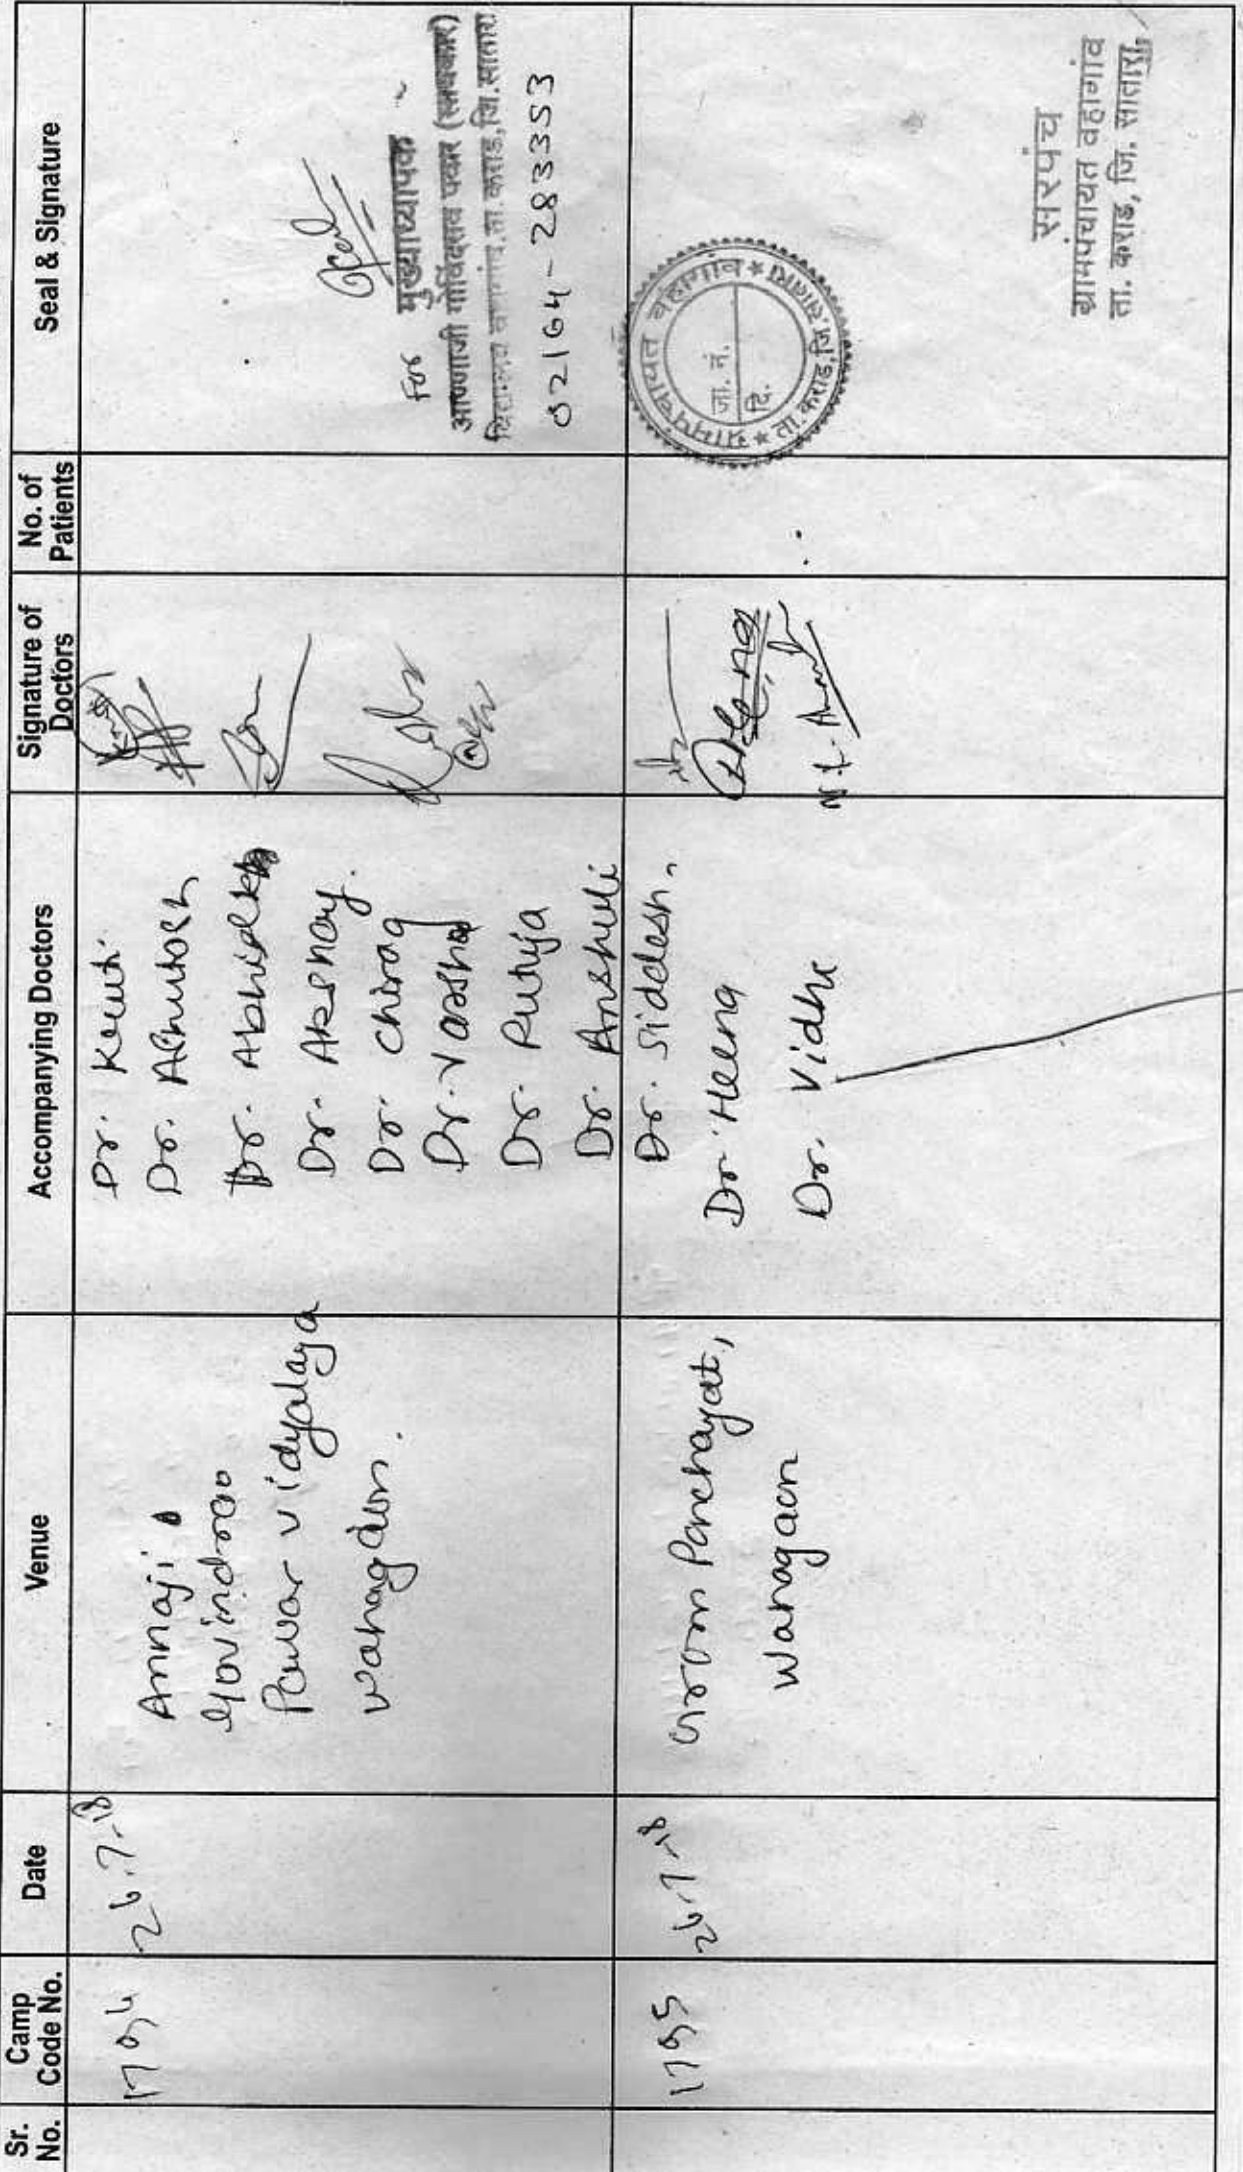 Sr. No.
Camp Code No.
Date
Venue
Accompanying Doctors
Signature of Doctors
No. of Patients
Seal & Signature
1794
26.7-18
Annaji
Govindrao
Pawar vidyalaya
wahagaon.
Dr. Kruti
Dr. Ashutosh
Dr. Abhishek
Dr. Akshay.
Dr. Chirag
Dr. Varsha
Dr. Rutuja
Dr. Anshuli
For मुख्याध्यापक
आण्णाजी गोविंदराव पवार
ता.कराड,जि.सातारा
02164-283353
1795
26.7-18
Gram Panchayat,
Wahagaon
Dr. Siddesh.
Dr. Heena
Dr. Vidhi
ग्रामपंचायत वहागांव
★ ता.कराड,जि.सातारा ★
जा. नं.
दि.
सरपंच
ग्रामपंचायत वहागांव
ता. कराड, जि. सातारा.